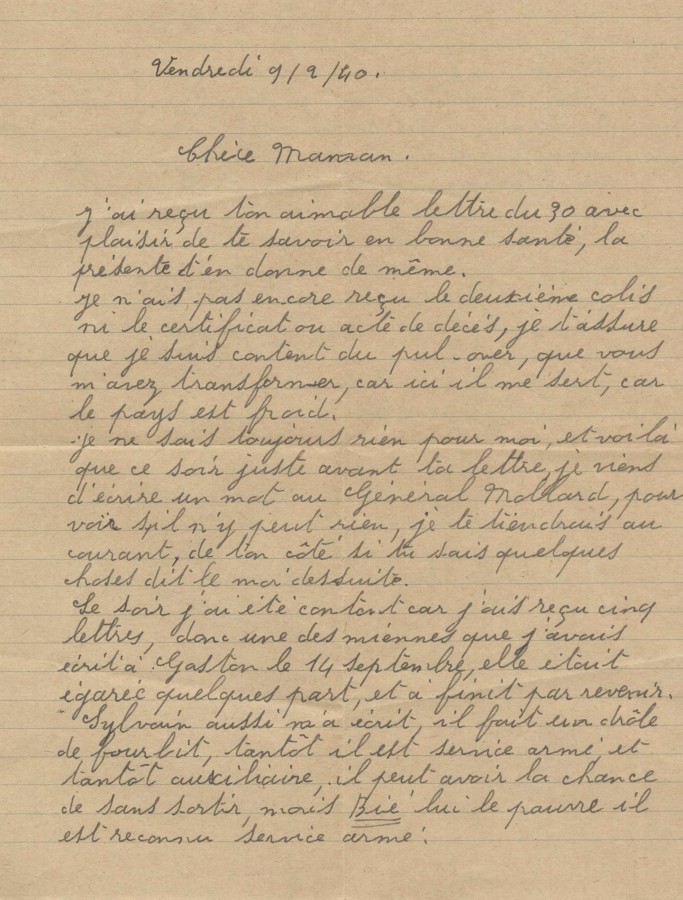 Vendredi 9/2/40.
Chère Manzan.
j'ai reçu ton aimable lettre du 30 avec
plaisir de te savoir en bonne santé, la
présente t'en donne de même.
je n'ais pas encore reçu le deuxième colis
ni le certificat ou acte de décés, je t'assure
que je suis content du pul-over, que vous
m'avez transformer, car ici il me sert, car
le pays est froid.
je ne sais toujours rien pour moi, et voilà
que ce soir juste avant ta lettre, je viens
d'écrire un mot au Général Mollard, pour
voir s'il n'y peut rien, je te tiendrais au
courant, de ton côté si tu sais quelques
choses dit le moi dessuite.
Ce soir j'ai été content car j'ais reçu cinq
lettres, donc une des miennes que j'avais
écrit à Gaston le 14 septembre, elle était
égareé quelques part, et à finit par revenir.
Sylvain aussi m'a écrit, il fait un drôle
de fourbit, tantôt il est service armé et
tantôt auxiliaire, il peut avoir la chance
de sans sortir, mais Bié lui le pauvre il
est reconnu service armé.